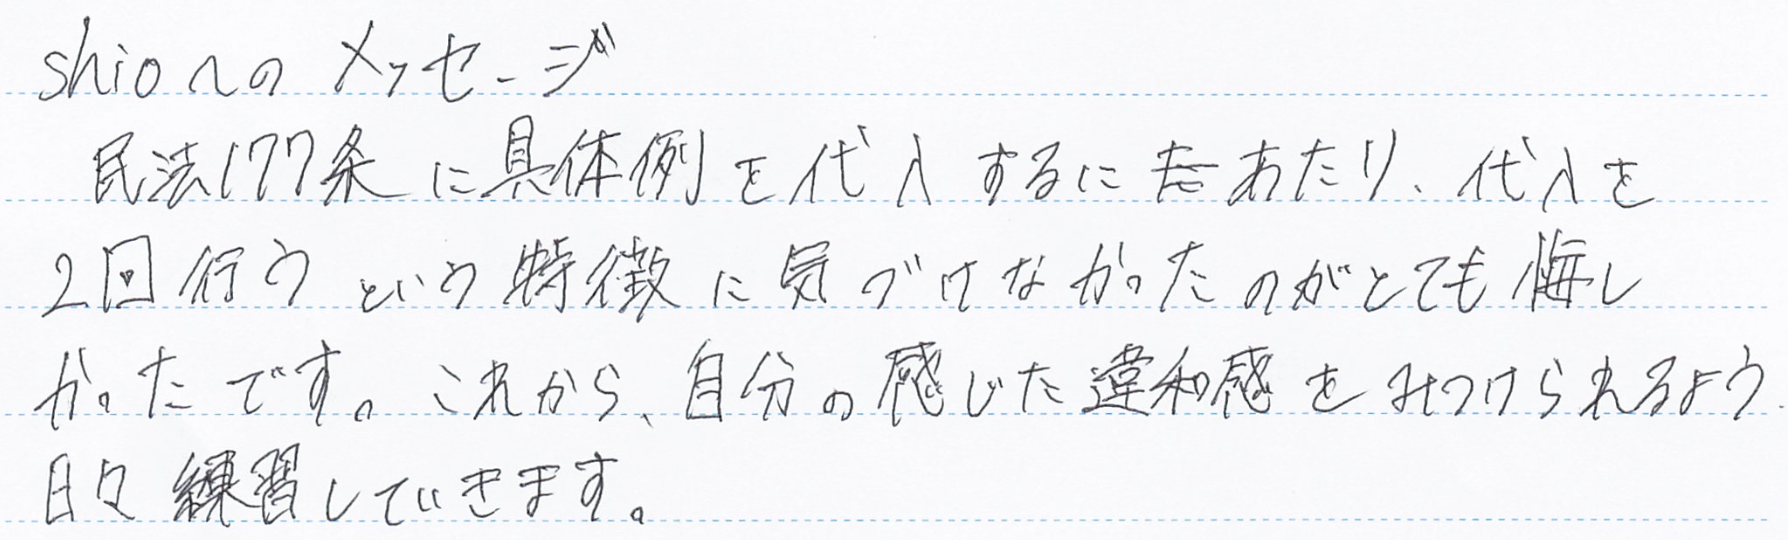 shioへのメッセージ
民法177条に具体例を代入するにあたり、代入を
2回行うという特徴に気づけなかったのがとても悔し
かったです。これから、自分の感じた違和感をみつけられるよう
日々練習していきます。